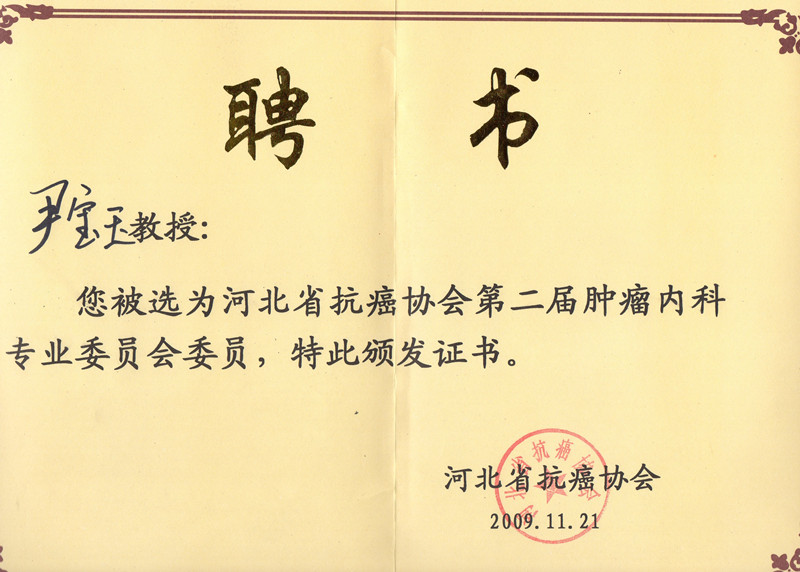 聘书
尹宝玉教授：
您被选为河北省抗癌协会第二届肿瘤内科
专业委员会委员，特此颁发证书。
河北省抗癌协会
河北省抗癌协会
2009.11.21